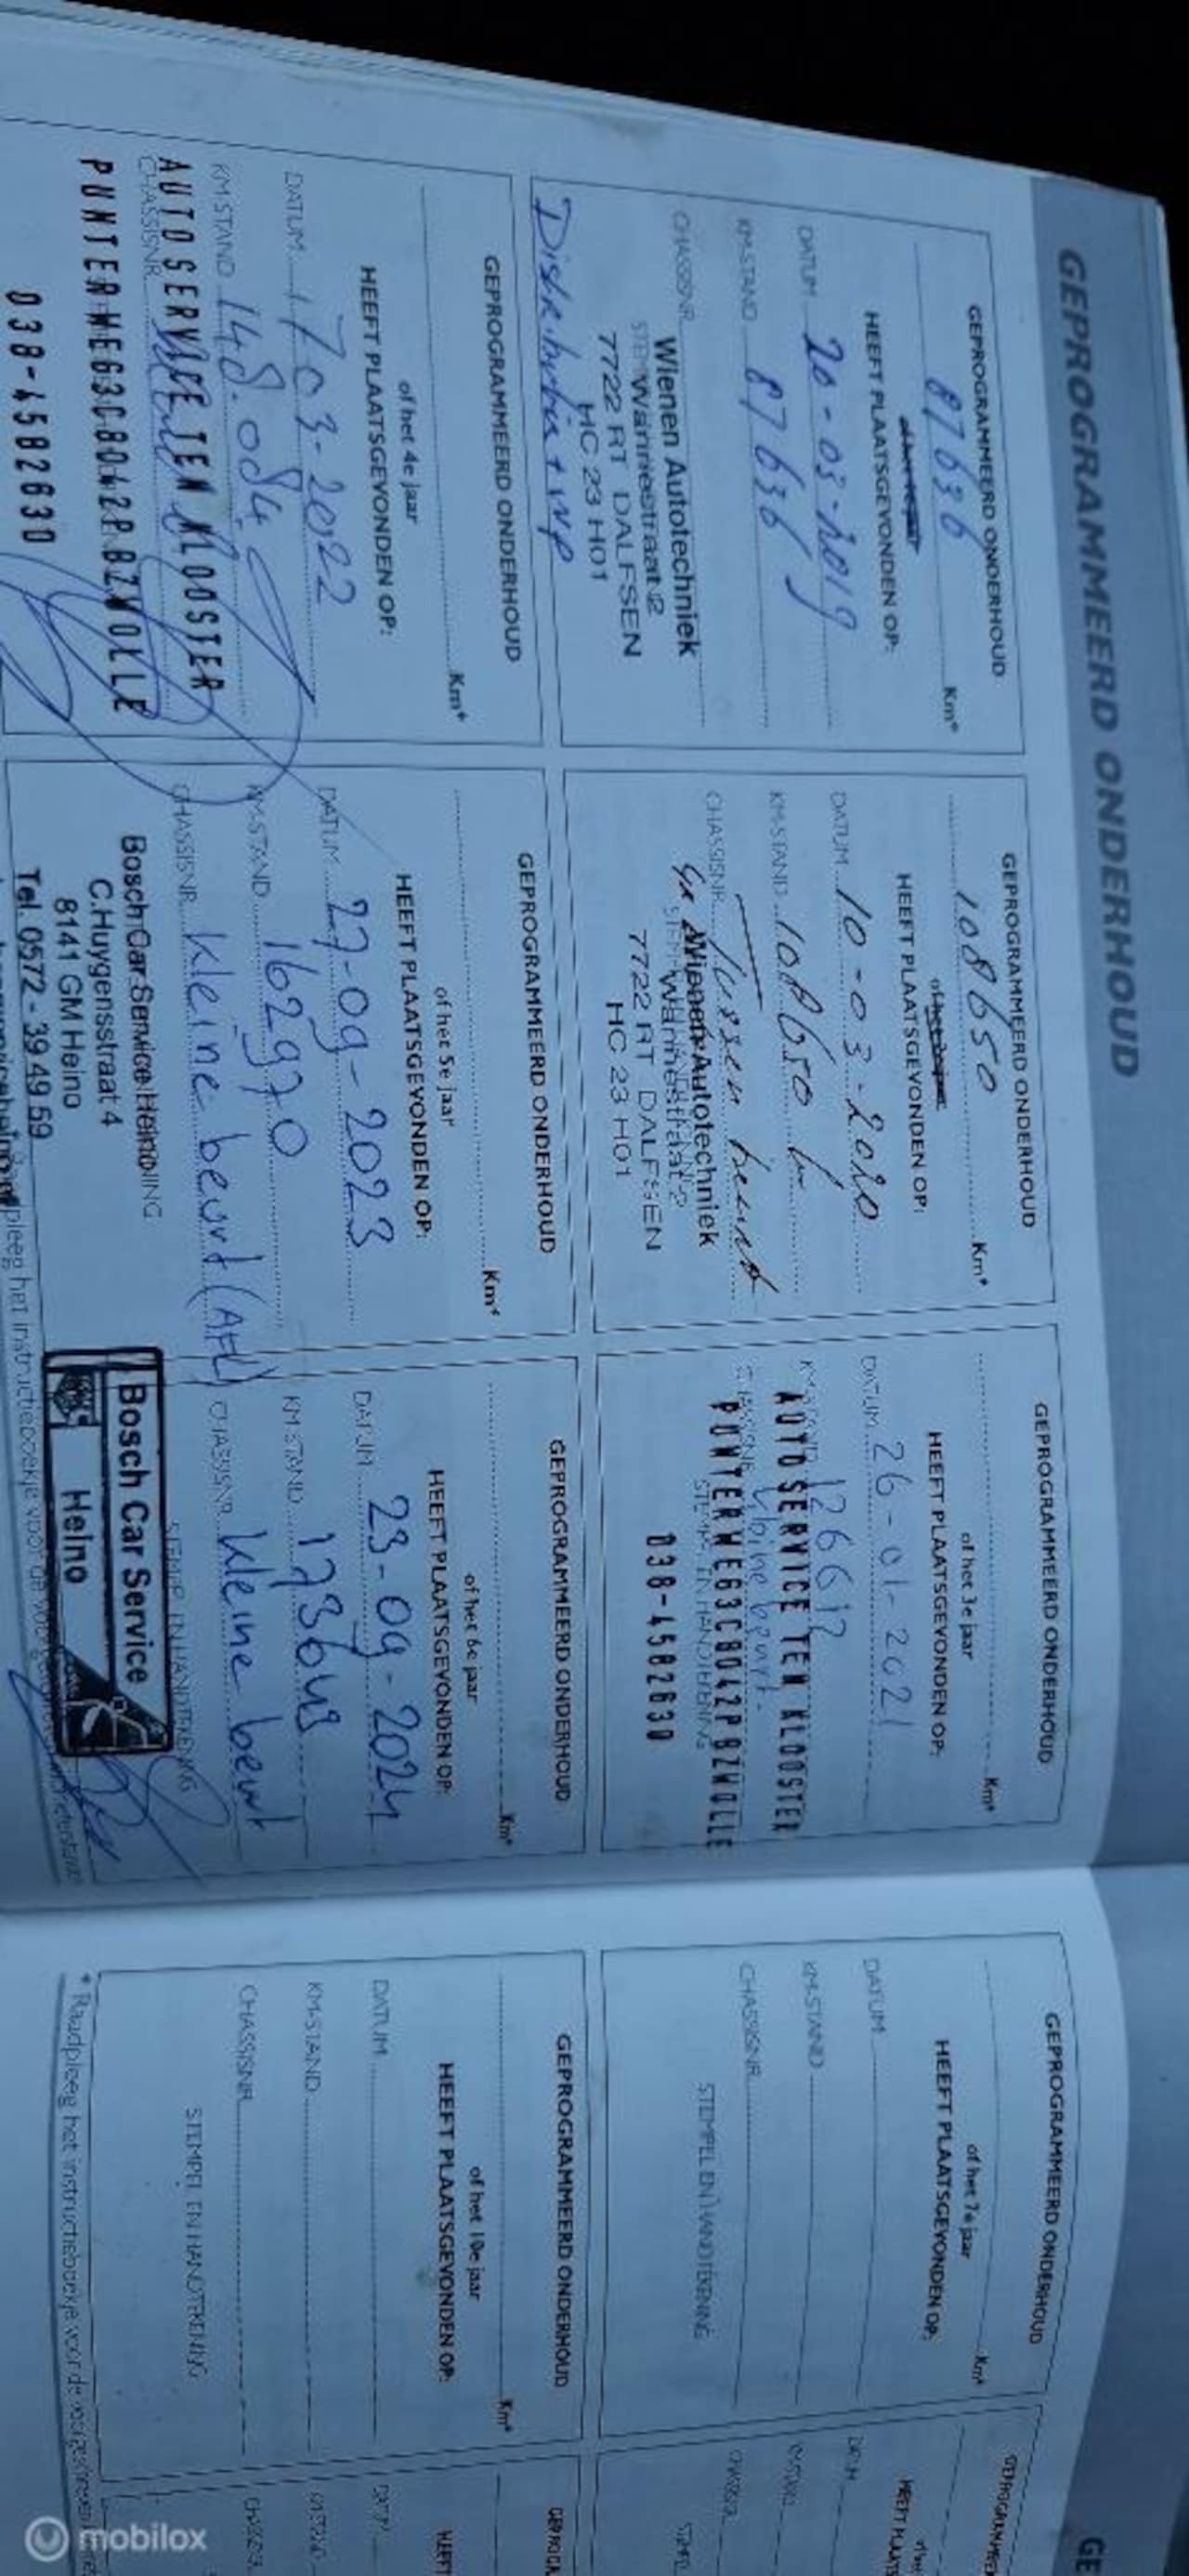 GEPROGRAMMEERD ONDERHOUD
GEPROGRAMMEERD ONDERHOUD
87636 Km*
HEEFT PLAATSGEVONDEN OP:
DATUM 20-03-2019
KM-STAND 87636
CHASSISNR.
Wienen Autotechniek
Wannestraat 2
7722 RT DALFSEN
HC 23 H01
Distributie + WP
GEPROGRAMMEERD ONDERHOUD
108650 Km*
HEEFT PLAATSGEVONDEN OP:
DATUM 10-03-2020
KM-STAND 108650
CHASSISNR. Tussen beurt
Wienen Autotechniek
Wannestraat 2
7722 RT DALFSEN
HC 23 H01
GEPROGRAMMEERD ONDERHOUD
Km*
of het 3e jaar
HEEFT PLAATSGEVONDEN OP:
DATUM 26-01-2021
12661
AUTOSERVICE TEN KLOOSTER
Kleine beurt
PUNTERWEG3C8042PBZWOLLE
STEMPEL EN HANDTEKENING
038-4582630
GEPROGRAMMEERD ONDERHOUD
Km*
of het 4e jaar
HEEFT PLAATSGEVONDEN OP:
DATUM 17 03-2022
KM-STAND 148.084
CHASSISNR.
AUTOSERVICE TEN KLOOSTER
PUNTERWEG3C8042PBZWOLLE
038-4582630
GEPROGRAMMEERD ONDERHOUD
Km*
of het 5e jaar
HEEFT PLAATSGEVONDEN OP:
DATUM 27-09-2023
KM-STAND 162970
CHASSISNR. kleine beurt (AFL)
Bosch Car Service Heino
C.Huygensstraat 4
8141 GM Heino
Tel. 0572 - 39 49 69
GEPROGRAMMEERD ONDERHOUD
Km*
of het 6e jaar
HEEFT PLAATSGEVONDEN OP:
DATUM 23-09-2024
KM-STAND
CHASSISNR. kleine beurt
STEMPEL EN HANDTEKENING
Bosch Car Service
Heino
GEPROGRAMMEERD ONDERHOUD
Km*
of het 7e jaar
HEEFT PLAATSGEVONDEN OP:
DATUM
KM-STAND
CHASSISNR.
STEMPEL EN HANDTEKENING
GEPROGRAMMEERD ONDERHOUD
Km*
of het 10e jaar
HEEFT PLAATSGEVONDEN OP:
DATUM
KM-STAND
CHASSISNR.
STEMPEL EN HANDTEKENING
* Raadpleeg het instructieboekje voor de voorgeschreven
GE
mobilox